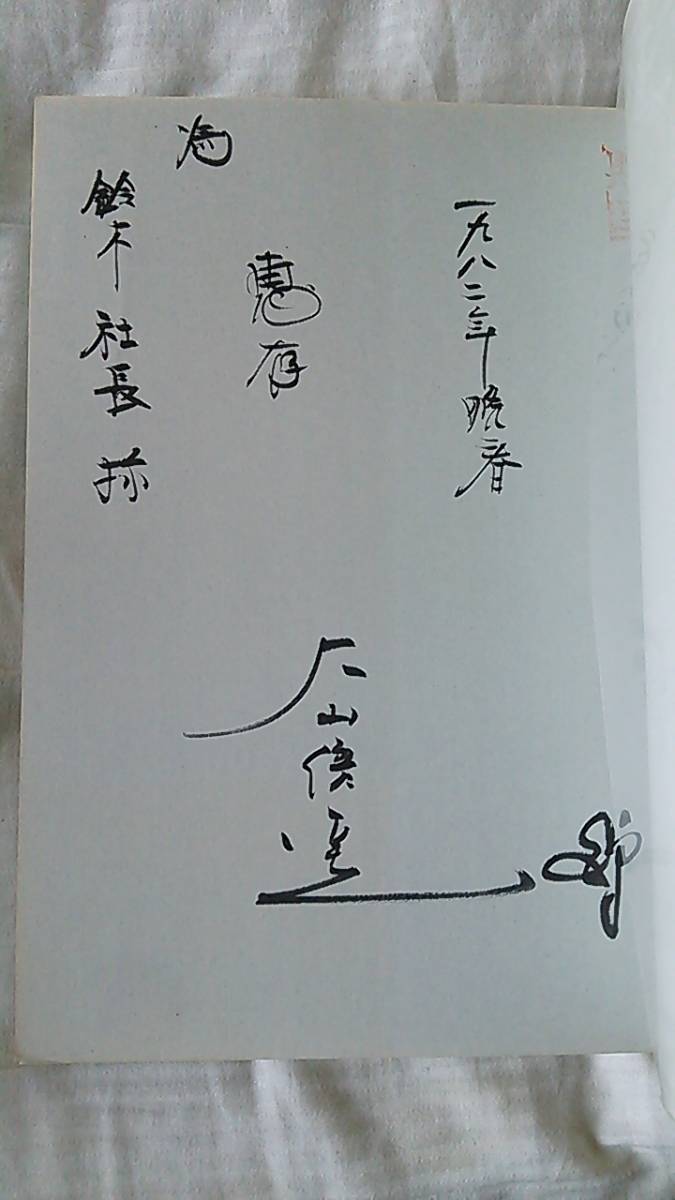 為
鈴木社長様
惠存
一九八二年晩春
大山倍達